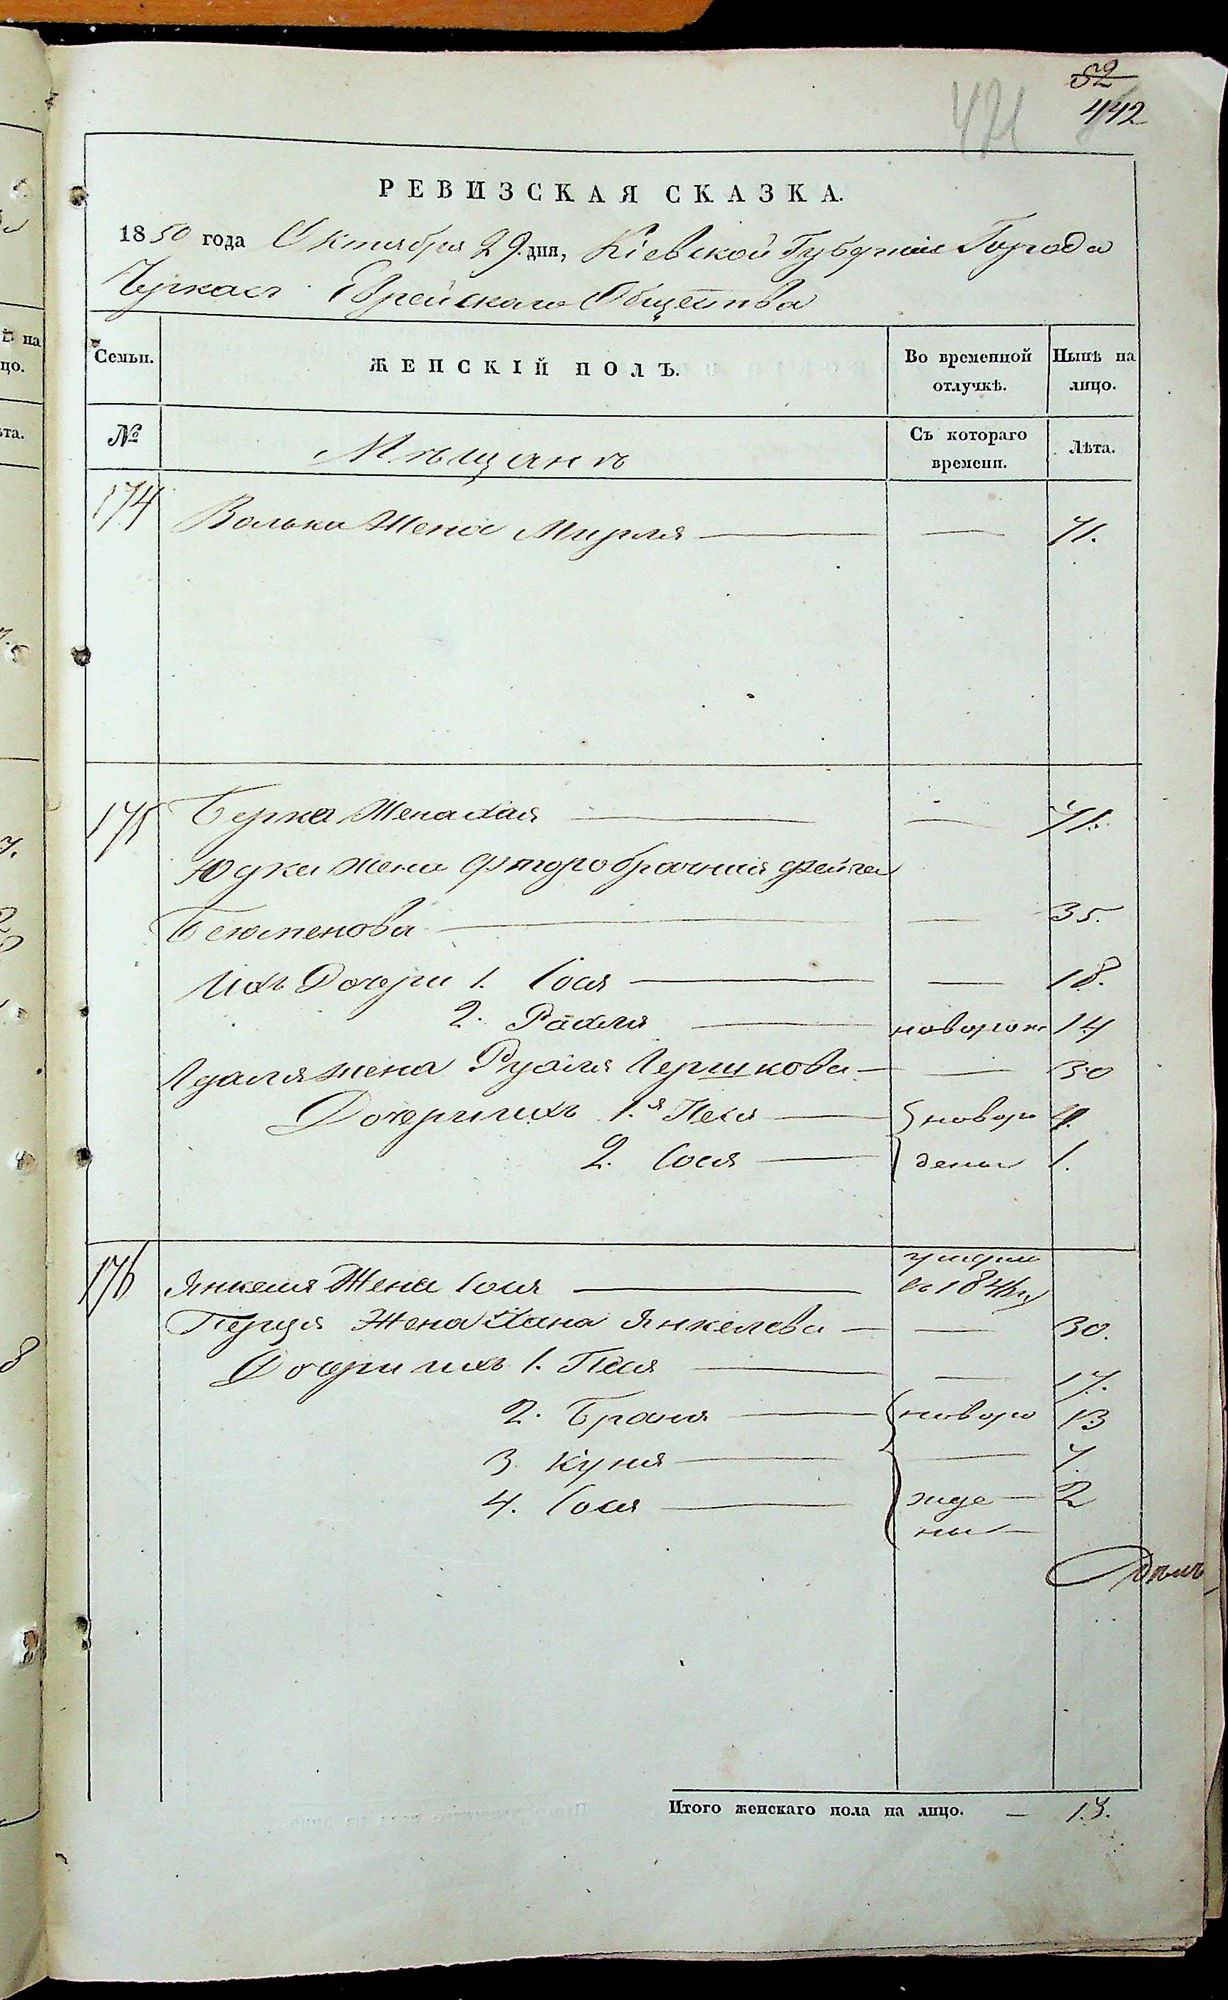 52
442
421
РЕВИЗСКАЯ СКАЗКА.
1850 года Октября 29 дня, Кіевской Губерніи Города
Черкасъ Еврейскаго Общества
Семьи. ЖЕНСКІЙ ПОЛЪ. Во временной отлучкѣ. Нынѣ на лицо.
№ Мѣщанъ Съ котораго времени. Лѣта.
174 Волька Жена Мирля — — 71.
175 Берка Жена Хая — — 71.
Юдки жена фторобрачная Фейга
— — 35.
Ихъ Дочери 1. Сося — — 18.
2. Рахля — новорож 14
жена Рухля Гершкова — — 30
Дочери ихъ 1.я Песя — новоро 4.
2. Сося — дены 1.
176 Янкеля Жена Сося — въ 184
Перца Жена Хана Янкелева — — 30.
Дочери ихъ 1. Песя — — 17.
2. Браня — новоро 13
3 Куня — — 7.
4. Сося — жде— 2
ны—
Итого женскаго пола на лицо. — 13.